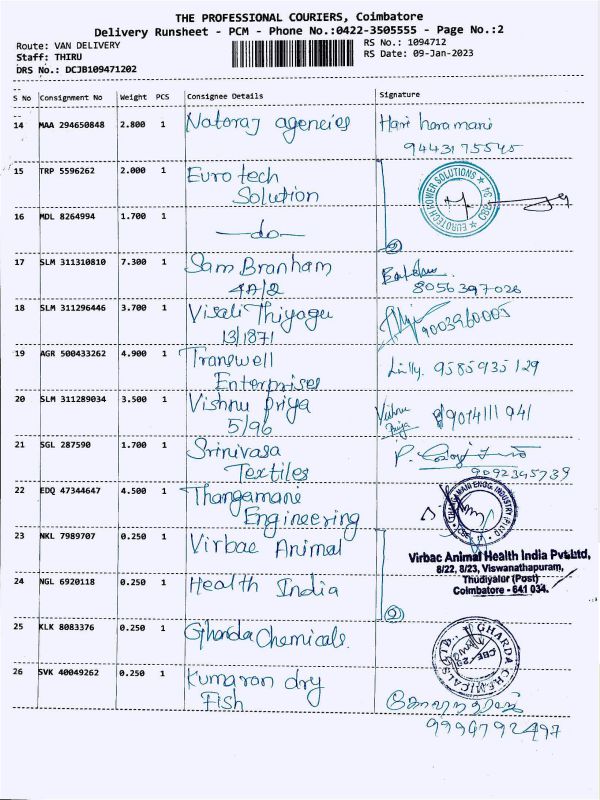 THE PROFESSIONAL COURIERS, Coimbatore
Delivery Runsheet - PCM - Phone No.:0422-3505555 - Page No.:2
Route: VAN DELIVERY
RS No.: 1094712
Staff: THIRU
RS Date: 09-Jan-2023
DRS No.: DCJB109471202
S No Consignment No Weight PCS Consignee Details Signature
14 MAA 294650848 2.800 1 Nataraj agencies Hari haramani
9443175545
15 TRP 5596262 2.000 1 Euro tech
Solution
EUROTECH POWER SOLUTIONS
16 MDL 8264994 1.700 1 -do-
②
17 SLM 311310810 7.300 1 Sam Branham
4A/2
8056397026
18 SLM 311296446 3.700 1 Visali Thiyagu
13/1871
9003960005
19 AGR 500433262 4.900 1 Transwell
Enterprises
Lilly. 9585935129
20 SLM 311289034 3.500 1 Vishnu priya
5/96
Vishnu
Priya
9014111941
21 SGL 287590 1.700 1 Srinivasa
Textiles
9092345739
22 EDQ 47344647 4.500 1 Thangamane
Engineering
23 NKL 7989707 0.250 1 Virbac Animal
Virbac Animal Health India Pvt.Ltd,
8/22, 8/23, Viswanathapuram,
Thudiyalur (Post)
Coimbatore - 641 034.
24 NGL 6920118 0.250 1 Health India
②
25 KLK 8083376 0.250 1 Gharda Chemicals
GHARDA CHEMICALS LTD.
26 SVK 40049262 0.250 1 Kumaran dry
Fish
9994792497